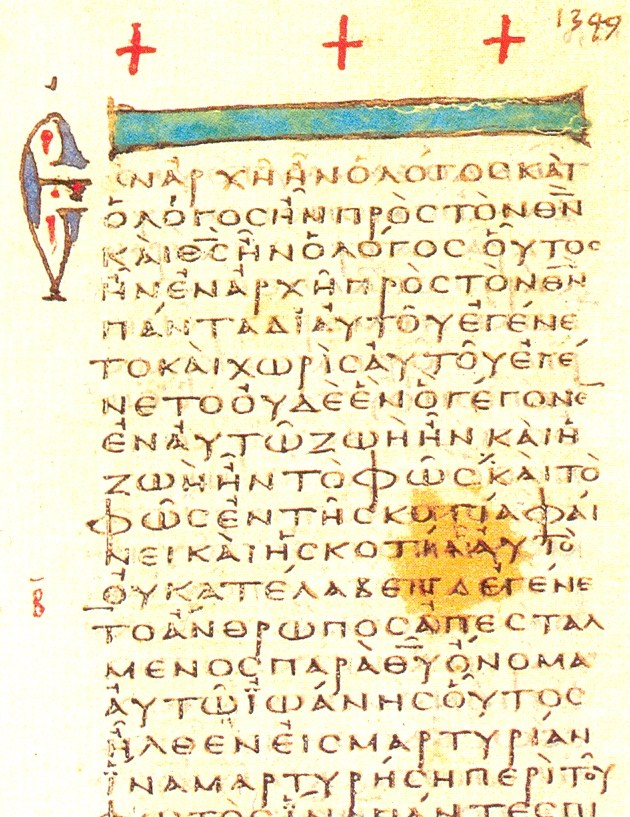 1349
ΕΝΑΡΧΗΗΝΟΛΟΓΟϹΚΑΙ
ΟΛΟΓΟϹΗΝΠΡΟϹΤΟΝΘ̅Ν̅
ΚΑΙΘ̅Ϲ̅ΗΝΟΛΟΓΟϹΟΥΤΟϹ
ΗΝΕΝΑΡΧΗΠΡΟϹΤΟΝΘ̅Ν̅
ΠΑΝΤΑΔΙΑΥΤΟΥΕΓΕΝΕ
ΤΟΚΑΙΧΩΡΙϹΑΥΤΟΥΕΓΕ
ΝΕΤΟΟΥΔΕΕΝΟΓΕΓΟΝΕ̅
ΕΝΑΥΤΩΖΩΗΗΝΚΑΙΗ
ΖΩΗΗΝΤΟΦΩϹΚΑΙΤΟ
ΦΩϹΕΝΤΗϹΚΟΤΙΑΦΑΙ
ΝΕΙΚΑΙΗϹΚΟΤΙΑΑΥΤΟ
Β̅
ΟΥΚΑΤΕΛΑΒΕΝΕΓΕΝΕ
ΤΟΑΝΘΡΩΠΟϹΑΠΕϹΤΑΛ
ΜΕΝΟϹΠΑΡΑΘ̅Υ̅ΟΝΟΜΑ
ΑΥΤΩΪΩΑΝΗϹΟΥΤΟϹ
ΗΛΘΕΝΕΙϹΜΑΡΤΥΡΙΑΝ
ΪΝΑΜΑΡΤΥΡΗϹΗΠΕΡΙΤΟΥ
ΦΩΤΟϹΪΝΑΠΑΝΤΕϹΠΙ